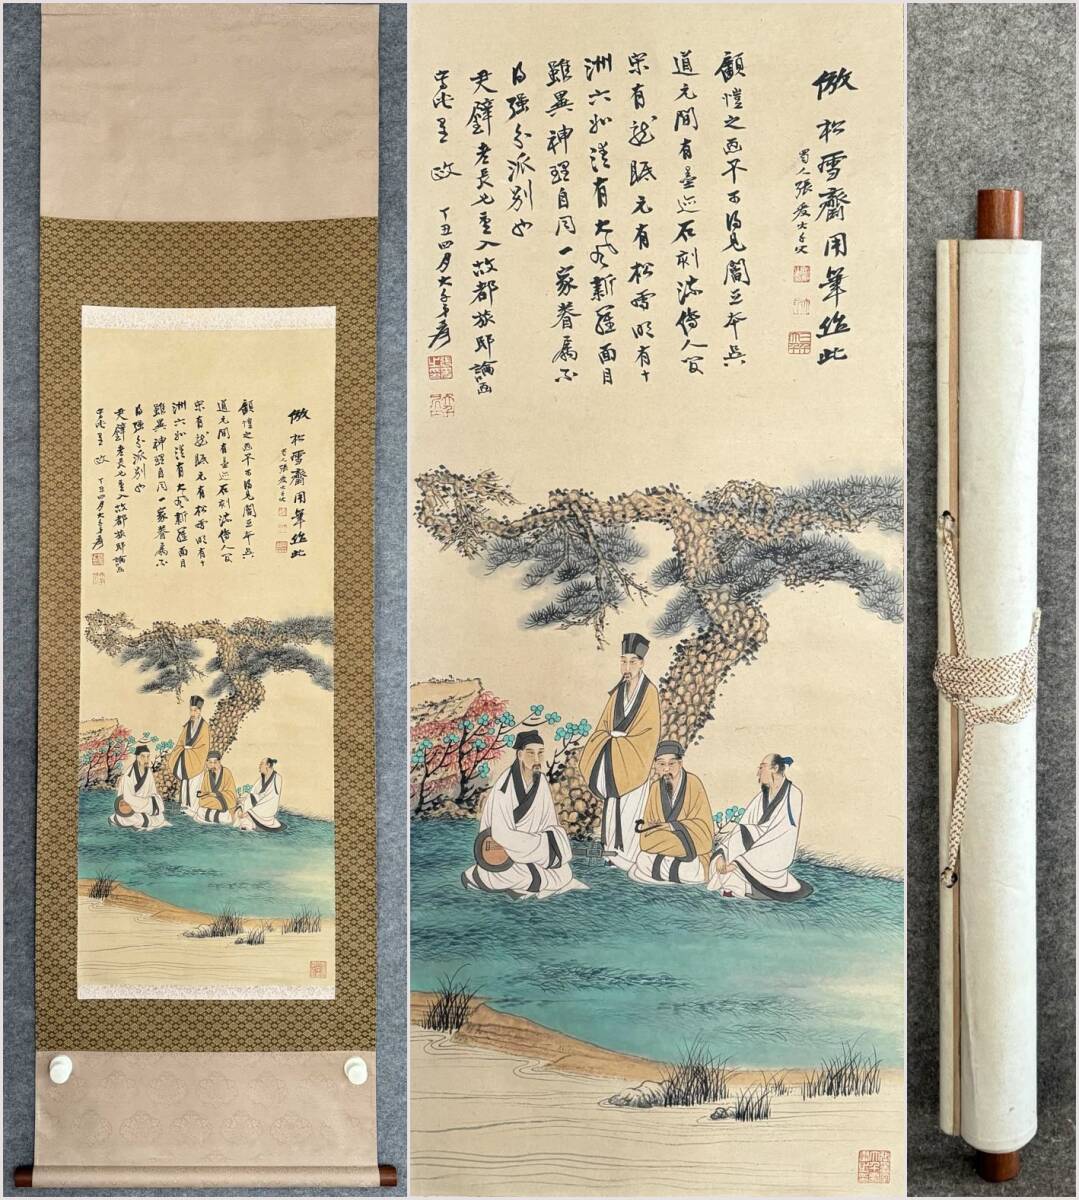 倣松雪齋用筆此
蜀人張爰大千父
顧愷之画不可得見閻立本吳
道元間有墨迹石刻流傳人間
宋有龍眠元有松雪明有十
洲六如清有大風新羅面目
雖異神理自同一家眷屬不
得強分派別也
尹老長兄重入故都旅邸論画
寫此呈政 丁丑四月大千弟爰